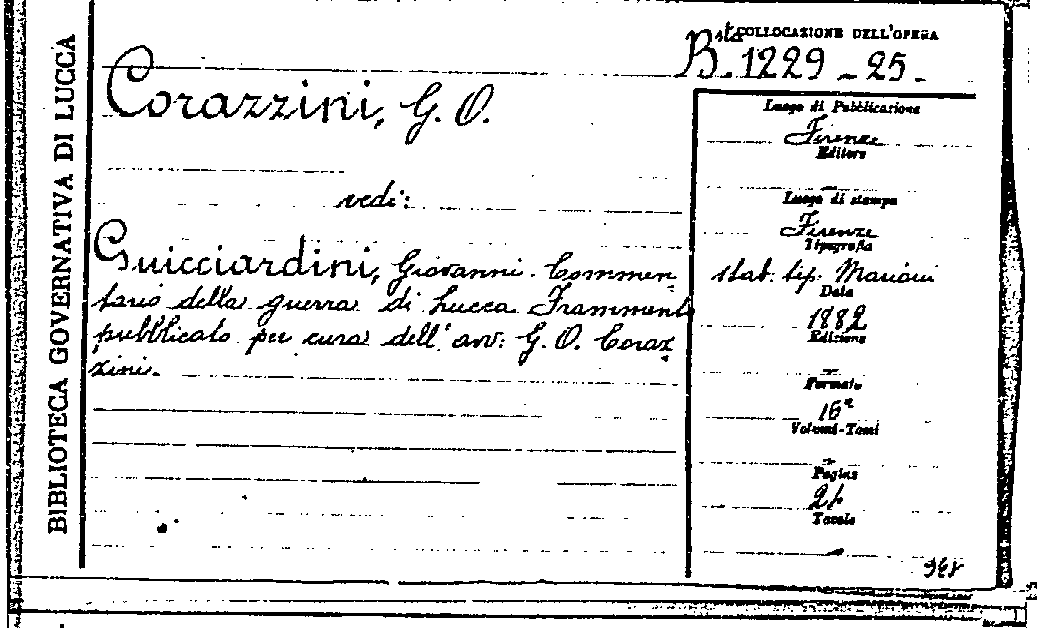 BIBLIOTECA GOVERNATIVA DI LUCCA
COLLOCAZIONE DELL'OPERA
Bsta. 1229 - 25.
Corazzini, G. O.
vedi:
Guicciardini, Giovanni. Commen-
tario della guerra di Lucca Frammento
pubblicato per cura dell'avv: G. O. Coraz-
zini.
Luogo di Pubblicazione
Firenze
Editore
Luogo di stampa
Firenze
Tipografia
stab. tip. Mariani
Data
1882
Edizione
Formato
16°
Volumi-Tomi
Pagine
Tavole